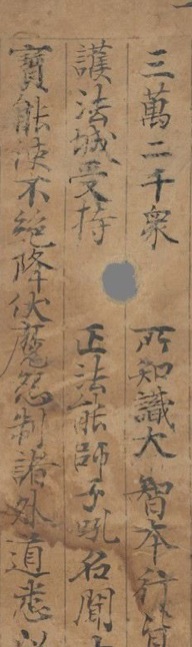 三萬二千衆所知識大智本行皆
護法城受持正法能師子吼名聞十
寶能使不絶降伏魔怨制諸外道悉以